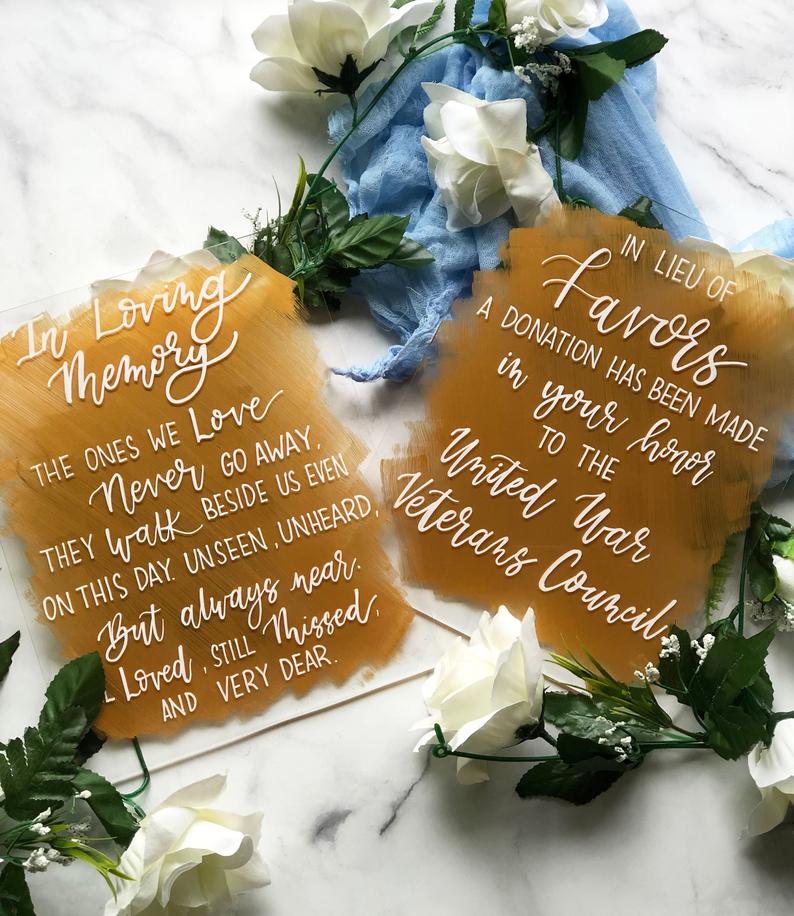 In Loving
Memory
THE ONES WE Love
Never GO AWAY,
THEY walk BESIDE US EVEN
ON THIS DAY. UNSEEN, UNHEARD,
But always near.
Loved, STILL Missed,
AND VERY DEAR.
IN LIEU OF
Favors
A DONATION HAS BEEN MADE
in your honor
TO THE
United War
Veterans Council